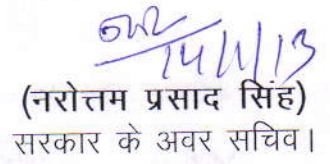 14/11/13
(नरोत्तम प्रसाद सिंह)
सरकार के अवर सचिव।